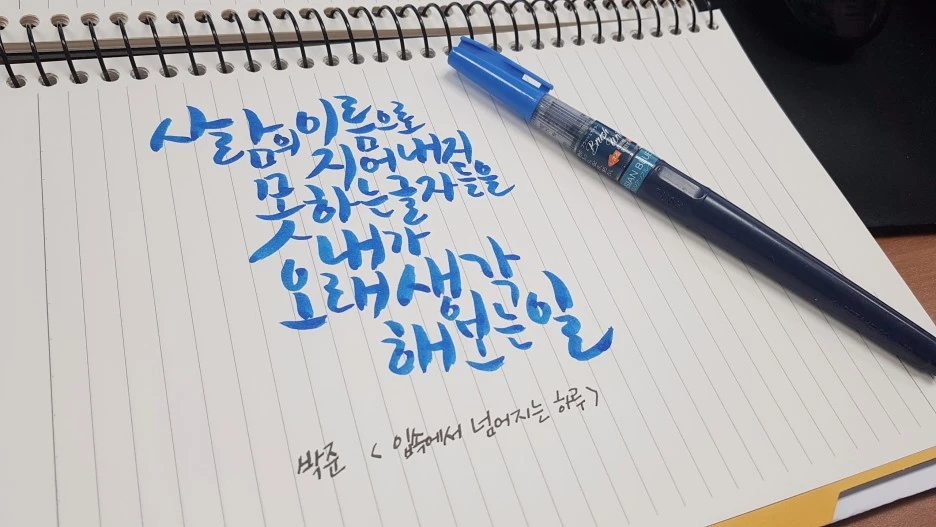 사람의 이름으로
지어내진
못하는 글자들을
내가
오래 생각
해보는 일
박준 <입속에서 넘어지는 하루>
Brush